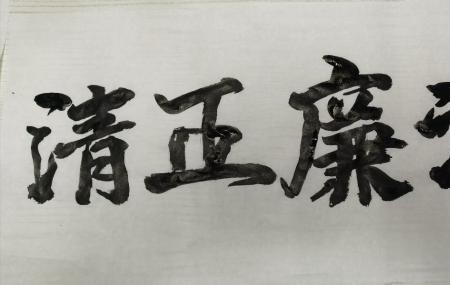 清正廉